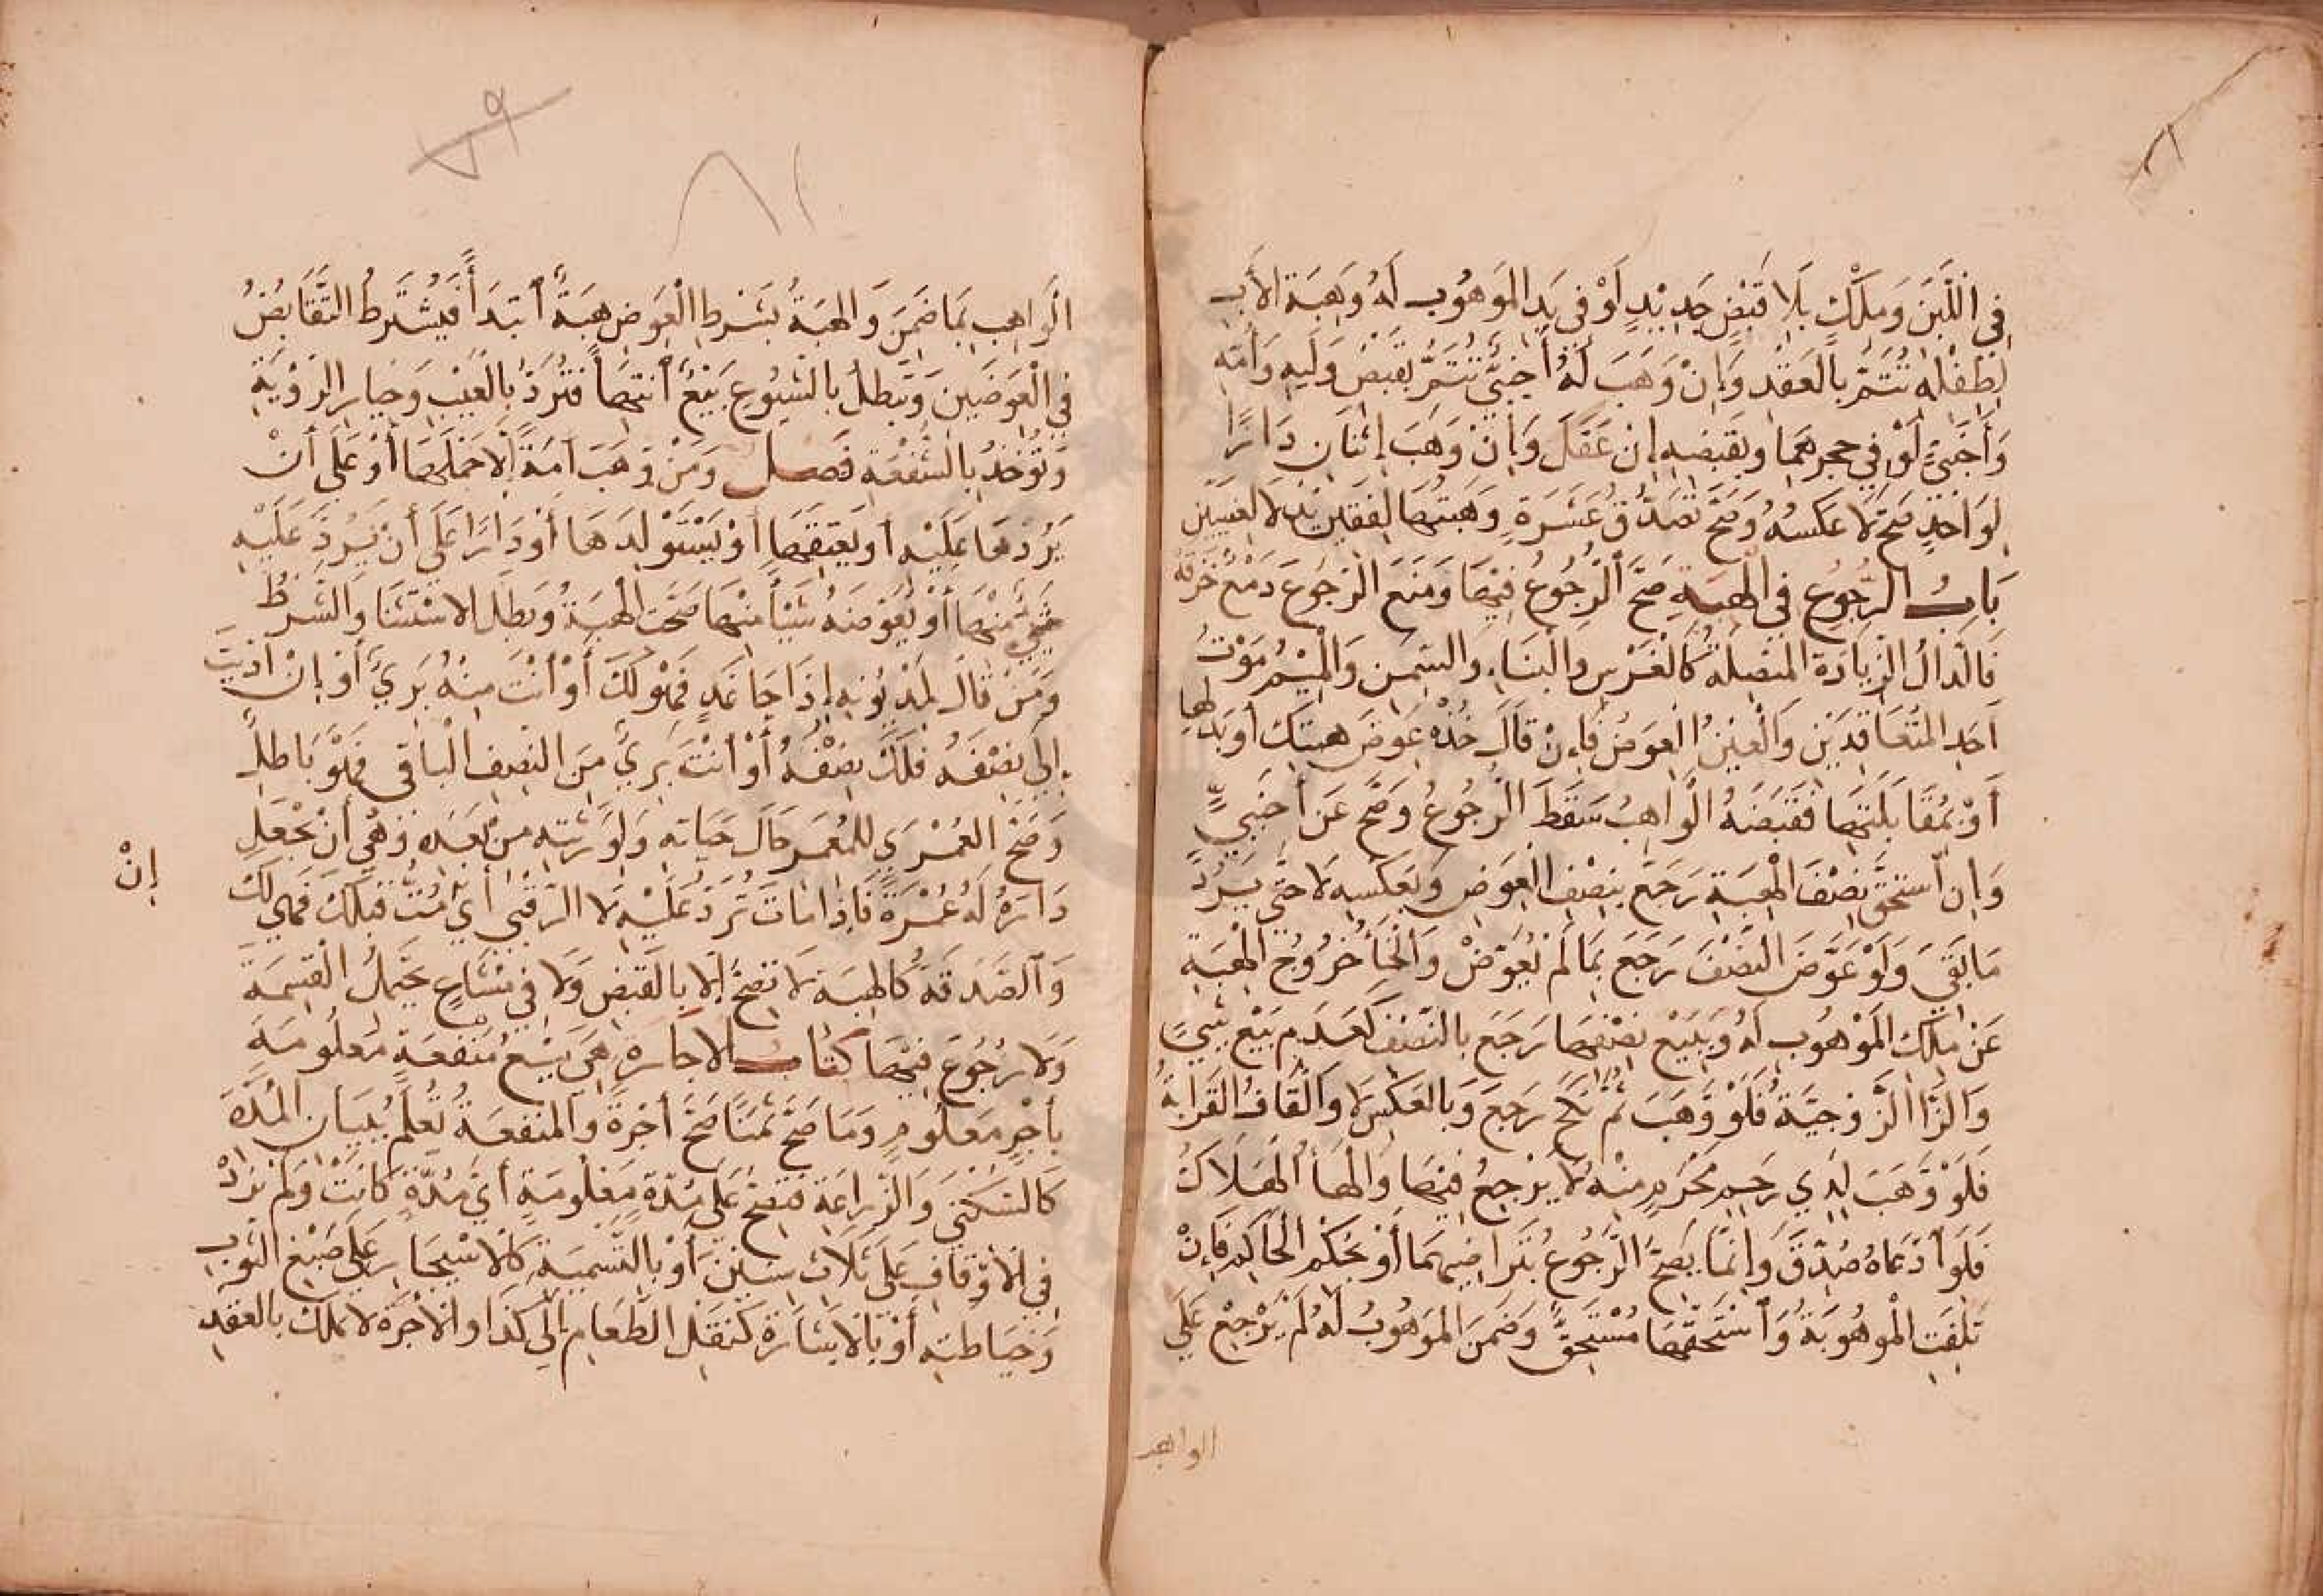 في اللبن وملك بلا قبض جديد لو في يد الموهوب له وهبة الأب
لطفله تتم بالعقد وإن وهب له أجنبي تتم بقبض وليه وأمه
وأجنبي لو في حجرهما وبقبضه إن عقل وإن وهب إثنان دارا
لواحد صح لا عكسه وصح تصدق عشرة وهبتها لفقيرين لا لغنيين
باب الرجوع في الهبة صح الرجوع فيها ومنع الرجوع دمع خزقه
فالدال الزيادة المتصلة كالغرس والبناء والسمن والميم موت
أحد المتعاقدين والعين العوض فإن قال خذه عوض هبتك أو بدلها
أو بمقابلتها فقبضه الواهب سقط الرجوع وصح عن أجنبي
وإن استحق نصف الهبة رجع بنصف العوض وبعكسه لا حتى يرد
ما بقي ولو عوض النصف رجع بما لم يعوض والخأ خروج الهبة
عن ملك الموهوب له وببيع نصفها رجع بالنصف كعدم بيع شيئ
والزا الزوجية فلو وهب ثم نكح رجع وبالعكس لا والقاف القرابة
فلو وهب لذي رحم محرم منه لا يرجع فيها والهأ الهلاك
فلو ادعاه صدق وإنما يصح الرجوع بتراضيهما أو بحكم الحاكم فإن
تلفت الموهوبة واستحقها مستحق وضمن الموهوب له لم يرجع على
الواهب
٧٩
٨١
الواهب بما ضمن والهبة بشرط العوض هبة ابتدأ فيشترط التقابض
في العوضين وتبطل بالشيوع بيع انتهاأ فترد بالعيب وخيار الرؤية
وتؤخذ بالشفعة فصل ومن وهب أمة إلا حملها أو على أن
يردها عليه أو يعتقها أو يستولدها أو دارا على أن يرد عليه
شيئ منها أو يعوضه شيئأ منها صحت الهبة وبطل الاستثنا والشرط
ومن قال لمديونه إذا جا غد فهو لك أو أنت منه بري أو إن أديت
إلي نصفه فلك نصفه أو أنت بري من النصف الباقي فهو باطل
وصح العمري للمعمر حال حياته ولورثته من بعده وهي أن يجعل
داره له عمره فإذا مات ترد عليه لا الرقبى أي إن مت قبلك فهي لك
إن
والصدقة كالهبة لا تصح إلا بالقبض ولا في مشاع يحتمل القسمة
ولا رجوع فيها كتاب الاجارة هي بيع منفعة معلومة
بأجر معلوم وما صح ثمنا صح أجرة والمنفعة تعلم ببيان المدة
كالسكنى والزراعة فتصح على مدة معلومة أي مدة كانت ولم يزد
في الاوقاف على ثلاث سنين أو بالتسمية كالاستيجار على صبغ الثوب
وخياطته أو بالاشارة كنقل الطعام إلى كذا والأجرة لا تملك بالعقد